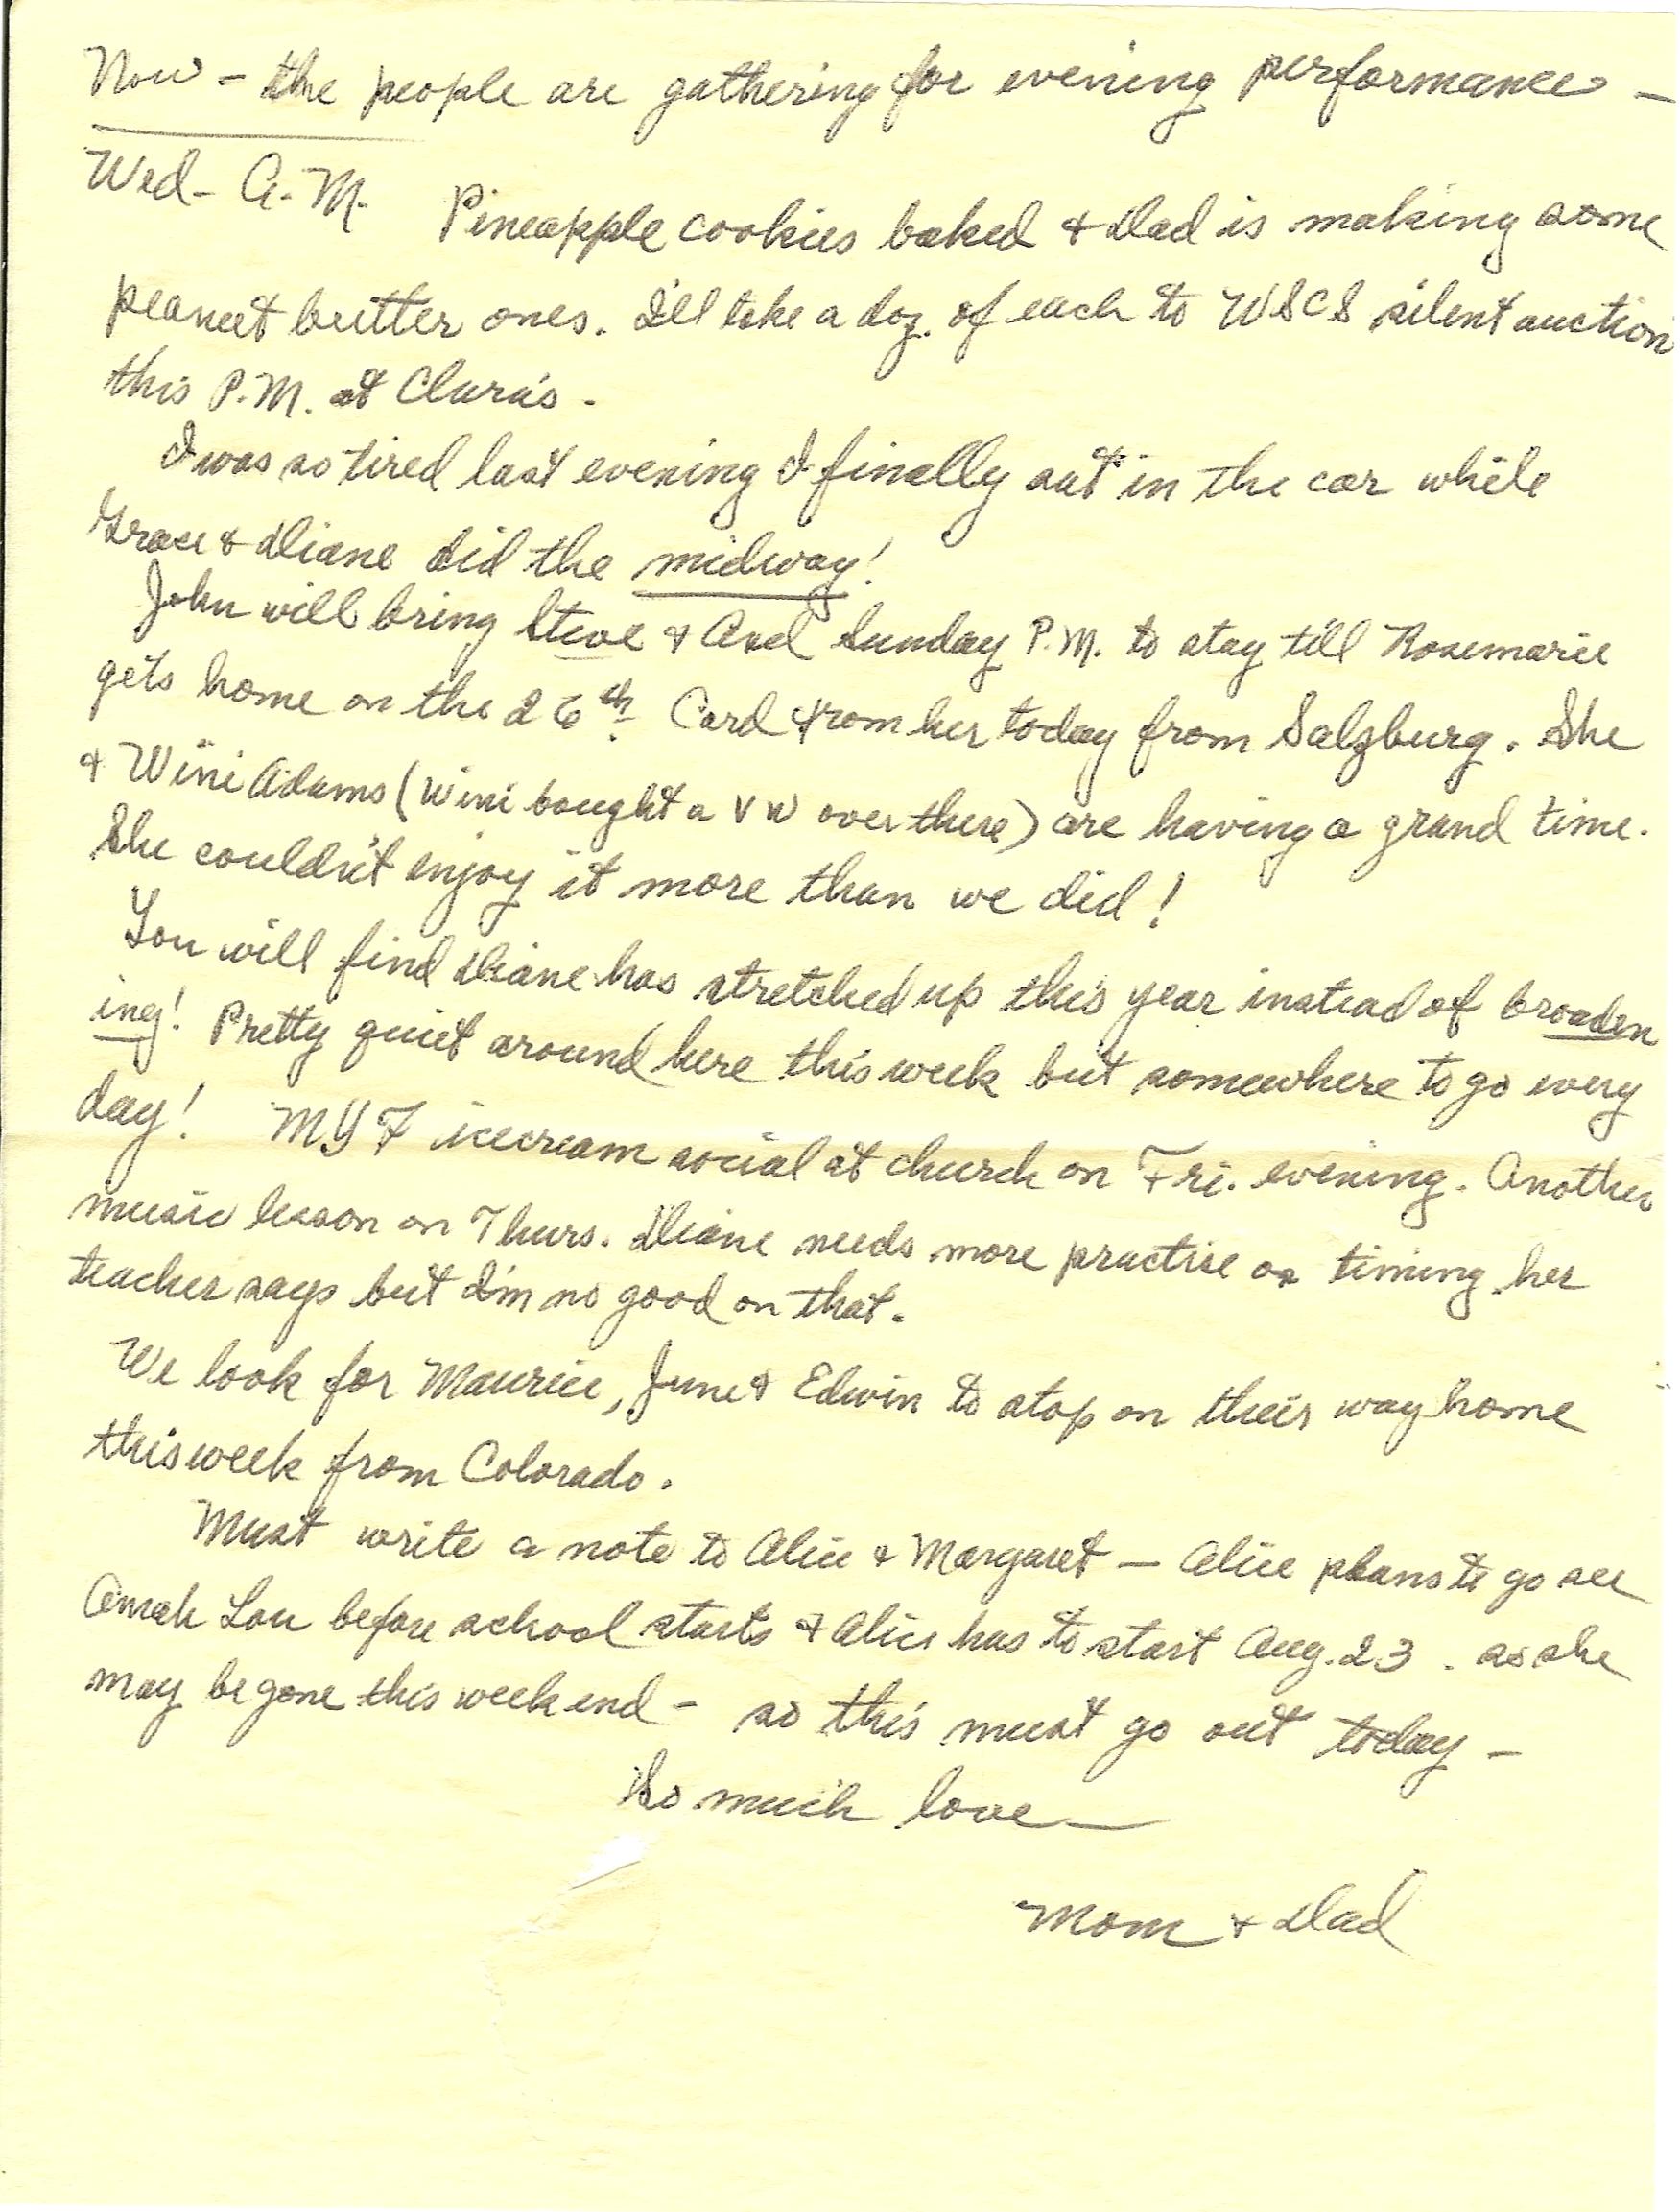 Now - the people are gathering for evening performance -
Wed - A.M. Pineapple cookies baked & Dad is making some
peanut butter ones. I'll take a doz. of each to WSCS silent auction
this P.M. at Clara's -
I was so tired last evening I finally sat in the car while
Grace & Diane did the midway!
John will bring Steve & Axel Sunday P.M. to stay till Rosemarie
gets home on the 26th. Card from her today from Salzburg. She
& Wini Adams (Wini bought a VW over there) are having a grand time.
She couldn't enjoy it more than we did!
You will find Diane has stretched up this year instead of broaden
ing! Pretty quiet around here this week but somewhere to go every
day! MYF icecream social at church on Fri. evening. Another
music lesson on Thurs. Diane needs more practise on timing her
teacher says but I'm no good on that.
We look for Maurice, June & Edwin to stop on their way home
this week from Colorado.
Must write a note to Alice & Margaret - Alice plans to go see
Lou before school starts & Alice has to start Aug. 23. as she
may be gone this weekend - so this must go out today -
So much love -
Mom & Dad